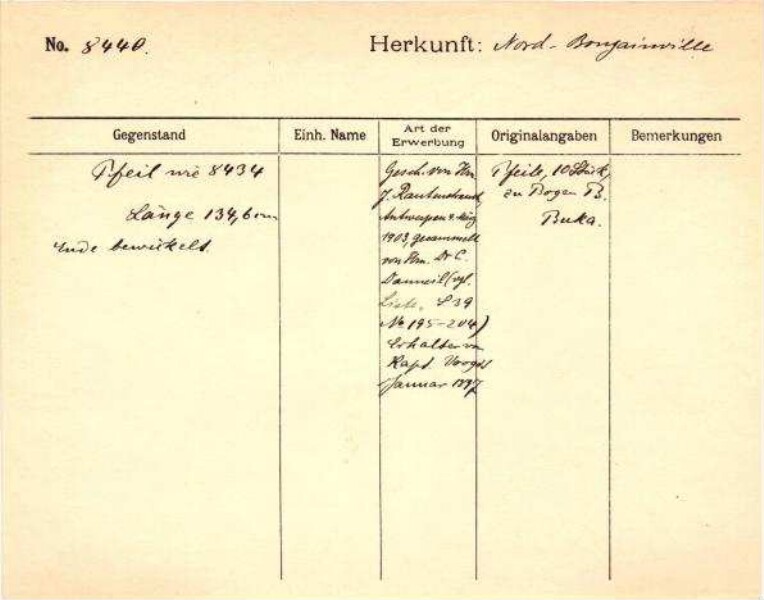 No. 8440.
Herkunft: Nord-Bougainville
Gegenstand
Einh. Name
Art der Erwerbung
Originalangaben
Bemerkungen
Pfeil wie 8434
Länge 134,6 cm
Ende bewickelt.
Gesch. von Hn
J. Rautenstrauch
Antwerpen
1903, gesammelt
von Hrn. Dr C.
Danneil (vgl.
Liste. S 39
No 195-204)
Erhalten von
Kapt.
Januar 1897
Pfeile, 10 Stück,
zu Bogen B.
Buka.